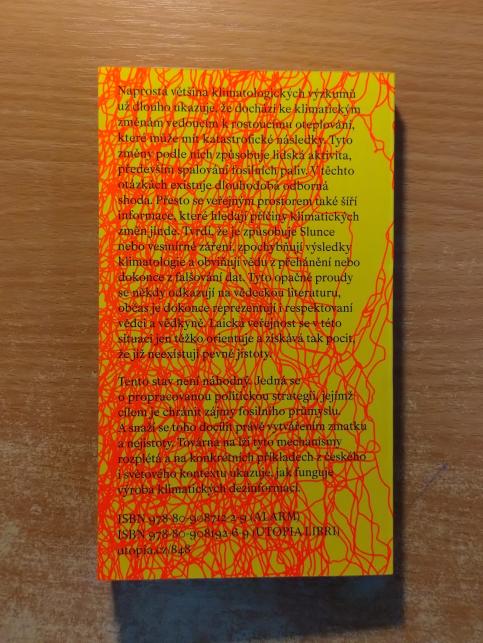 Naprostá většina klimatologických výzkumů
už dlouho ukazuje, že dochází ke klimatickým
změnám vedoucím k rostoucímu oteplování,
které může mít katastrofické následky. Tyto
změny podle nich způsobuje lidská aktivita,
především spalování fosilních paliv. V těchto
otázkách existuje dlouhodobá odborná
shoda. Přesto se veřejným prostorem také šíří
informace, které hledají příčiny klimatických
změn jinde. Tvrdí, že je způsobuje Slunce
nebo vesmírné záření, zpochybňují výsledky
klimatologie a obviňují vědu z přehánění nebo
dokonce z falšování dat. Tyto opačné proudy
se někdy odkazují na vědeckou literaturu,
občas je dokonce reprezentují i respektovaní
vědci a vědkyně. Laická veřejnost se v této
situaci jen těžko orientuje a získává tak pocit,
že již neexistují pevné jistoty.
Tento stav není náhodný. Jedná se
o propracovanou politickou strategii, jejímž
cílem je chránit zájmy fosilního průmyslu.
A snaží se toho docílit právě vytvářením zmatku
a nejistoty. Továrna na lži tyto mechanismy
rozplétá a na konkrétních příkladech z českého
i světového kontextu ukazuje, jak funguje
výroba klimatických dezinformací.
ISBN 978-80-908712-2-9 (ALARM)
ISBN 978-80-908192-6-9 (UTOPIA LIBRI)
utopia.cz/848